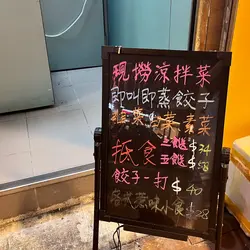 現撈涼拌菜
即叫即蒸餃子
葷菜 素菜
三餸 $34
抵食 五餸 $58
餃子一打 $40
各式惹味小食 $28